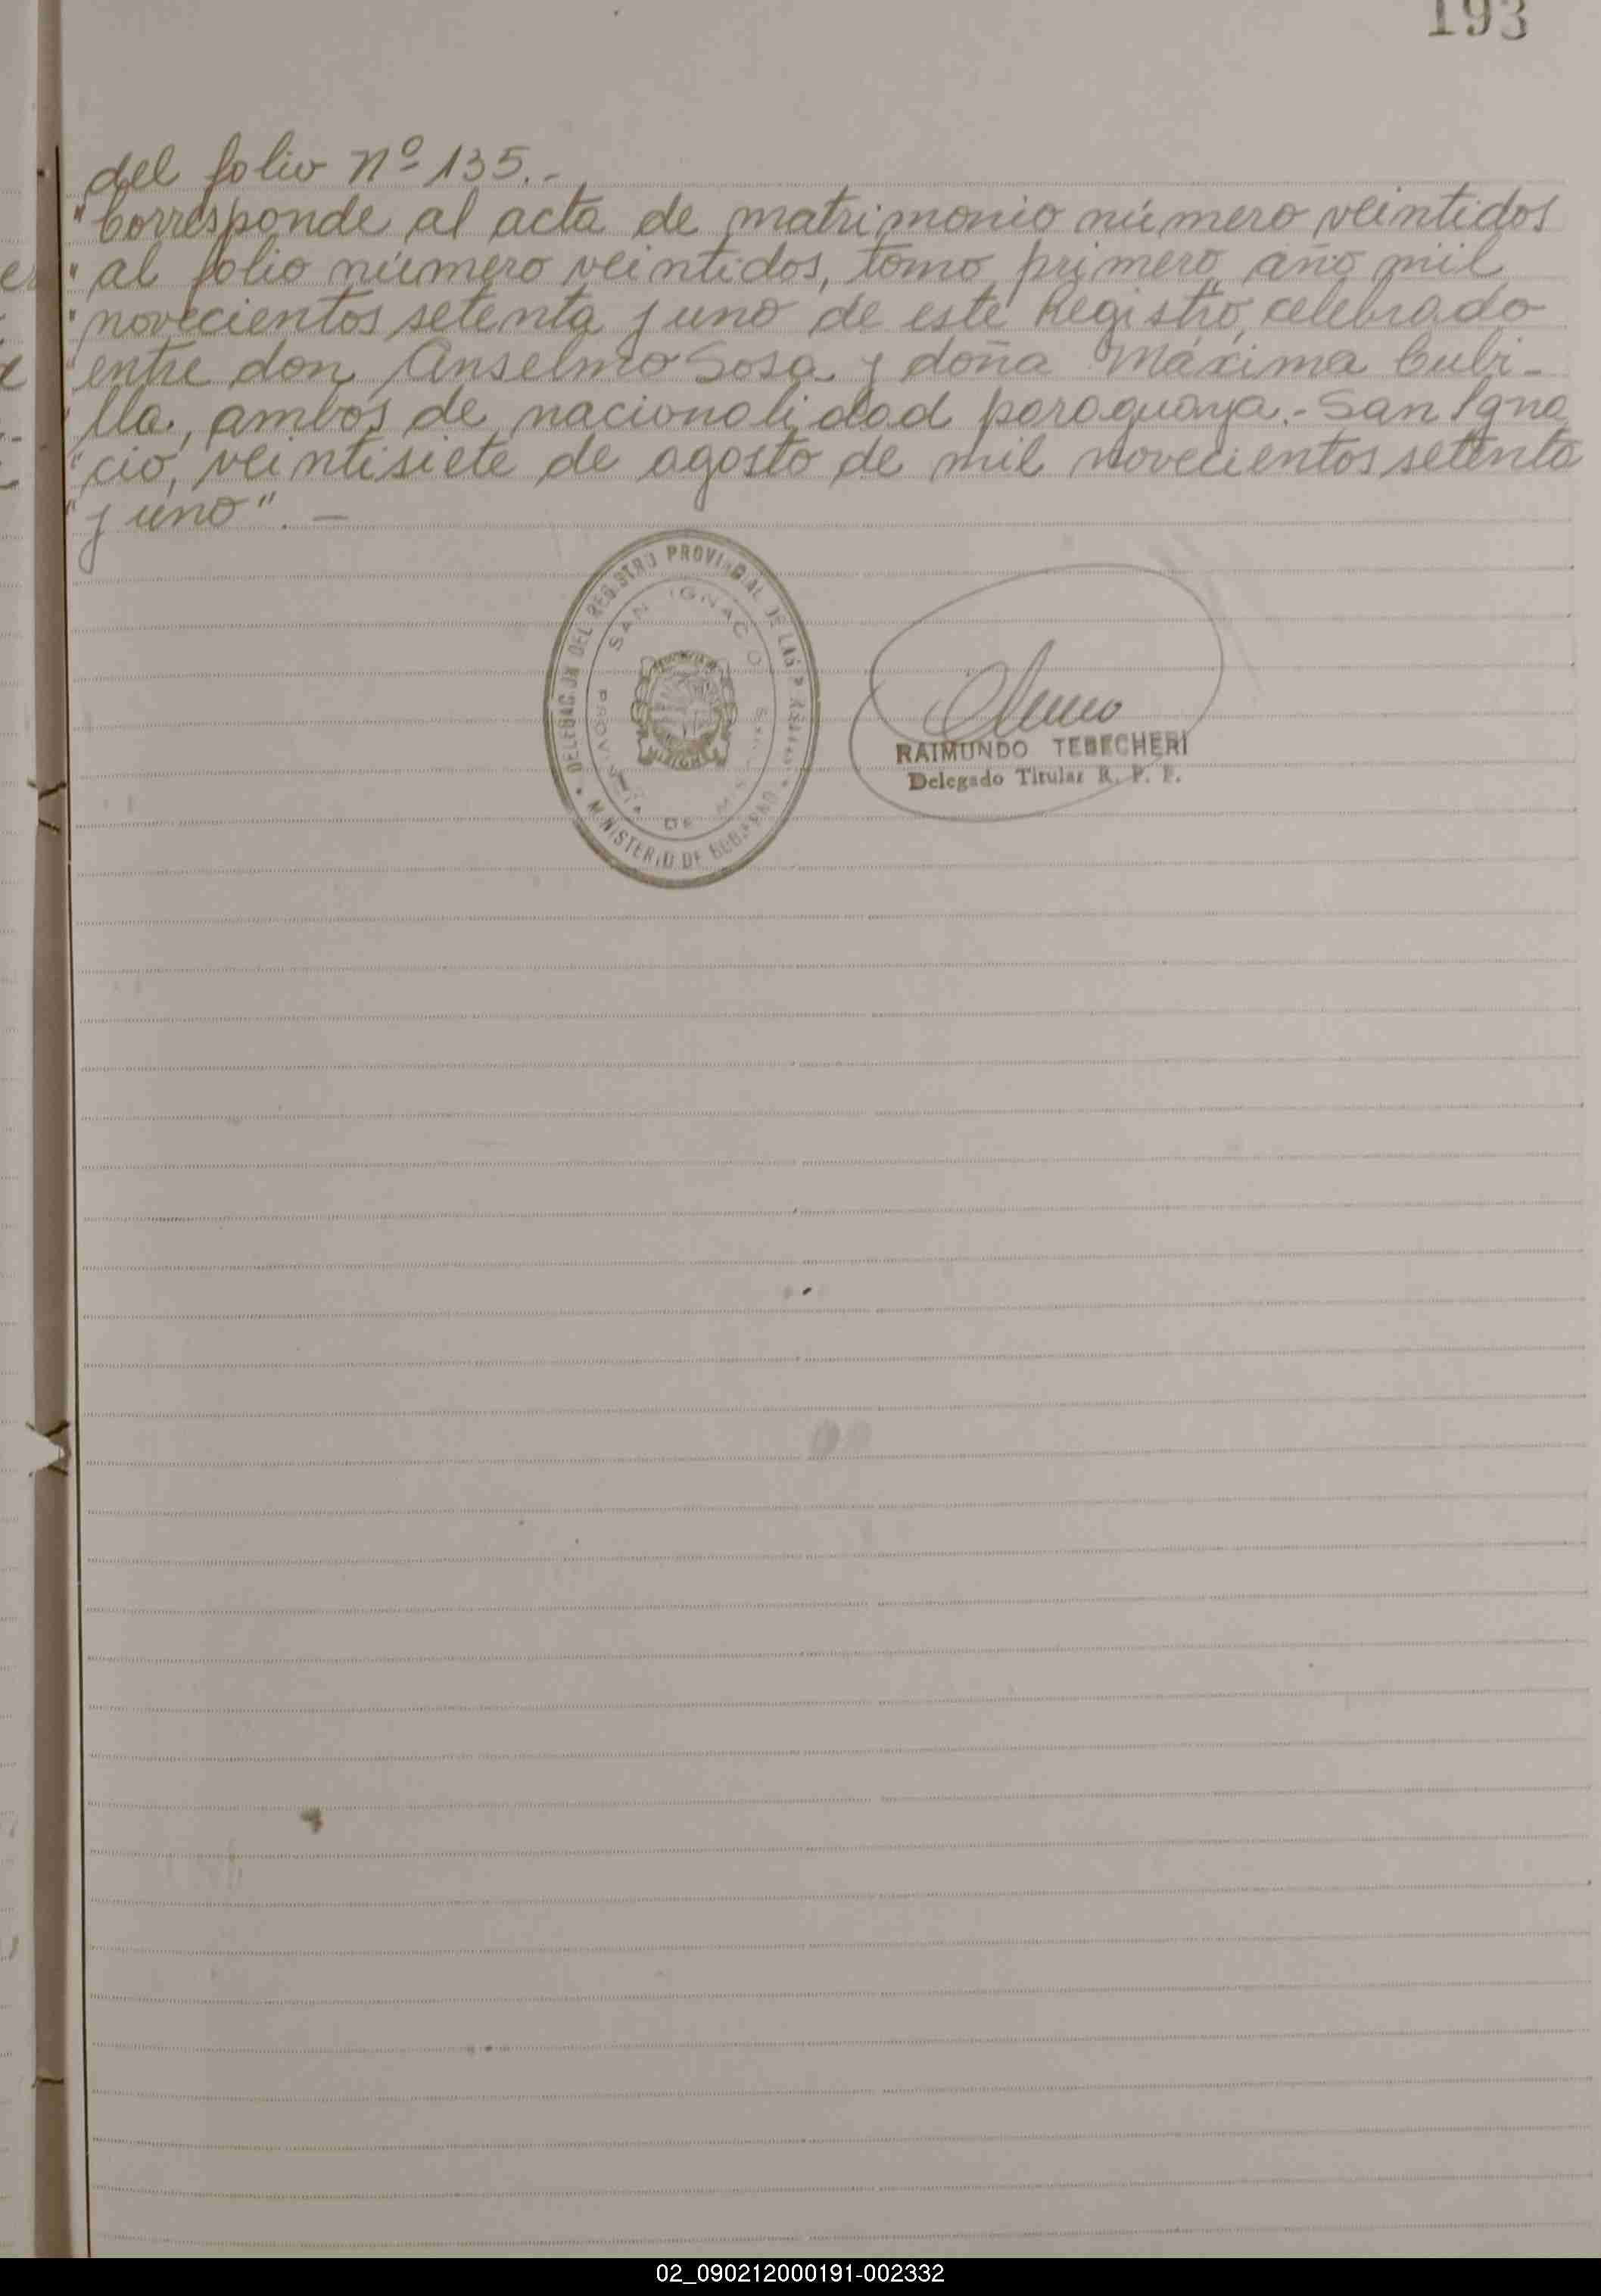 193
del folio Nº 135.-
"Corresponde al acta de matrimonio número veintidos
"al folio número veintidos, tomo primero, año mil
"novecientos setenta y uno de este Registro, celebrado
"entre don Anselmo Sosa y doña Máxima Cubi-
"lla, ambos de nacionalidad paraguaya.- San Igna
"cio, veintisiete de agosto de mil novecientos setenta
"y uno". -
DELEGACION DEL REGISTRO PROVINCIAL DE LAS
SAN IGNACIO
PROVINCIA DE MISIONES
MISIONES
MINISTERIO DE GOBIERNO
RAIMUNDO TEBECHERI
Delegado Titular R. P. P.
02_090212000191-002332